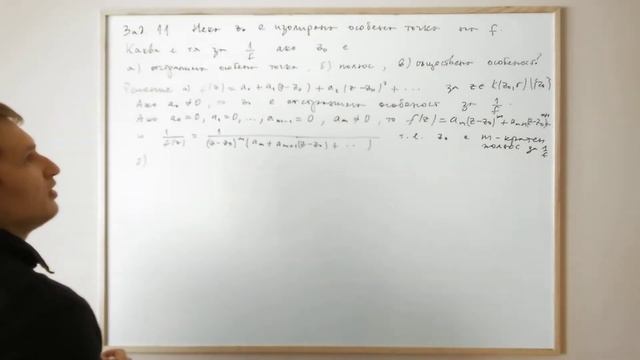 Зад. 11 Нека z₀ е изолирана особена точка на f.
Каква е тя за 1/f ако z₀ е
а) отстранима особена точка, б) полюс, в) съществена особеност?
Решение а) f(z) = a₀ + a₁(z-z₀) + a₂(z-z₀)² + ... за z ∈ K(z₀,r)\{z₀}
Ако a₀ ≠ 0, то z₀ е отстранима особеност за 1/f.
Ако a₀ = 0, a₁ = 0, ..., aₘ₋₁ = 0, aₘ ≠ 0, то f(z) = aₘ(z-z₀)ᵐ + aₘ₊₁(z-z₀)ᵐ⁺¹
и 1/f(z) = 1/((z-z₀)ᵐ(aₘ + aₘ₊₁(z-z₀) + ...)) т.е. z₀ е m-кратен полюс за 1/f